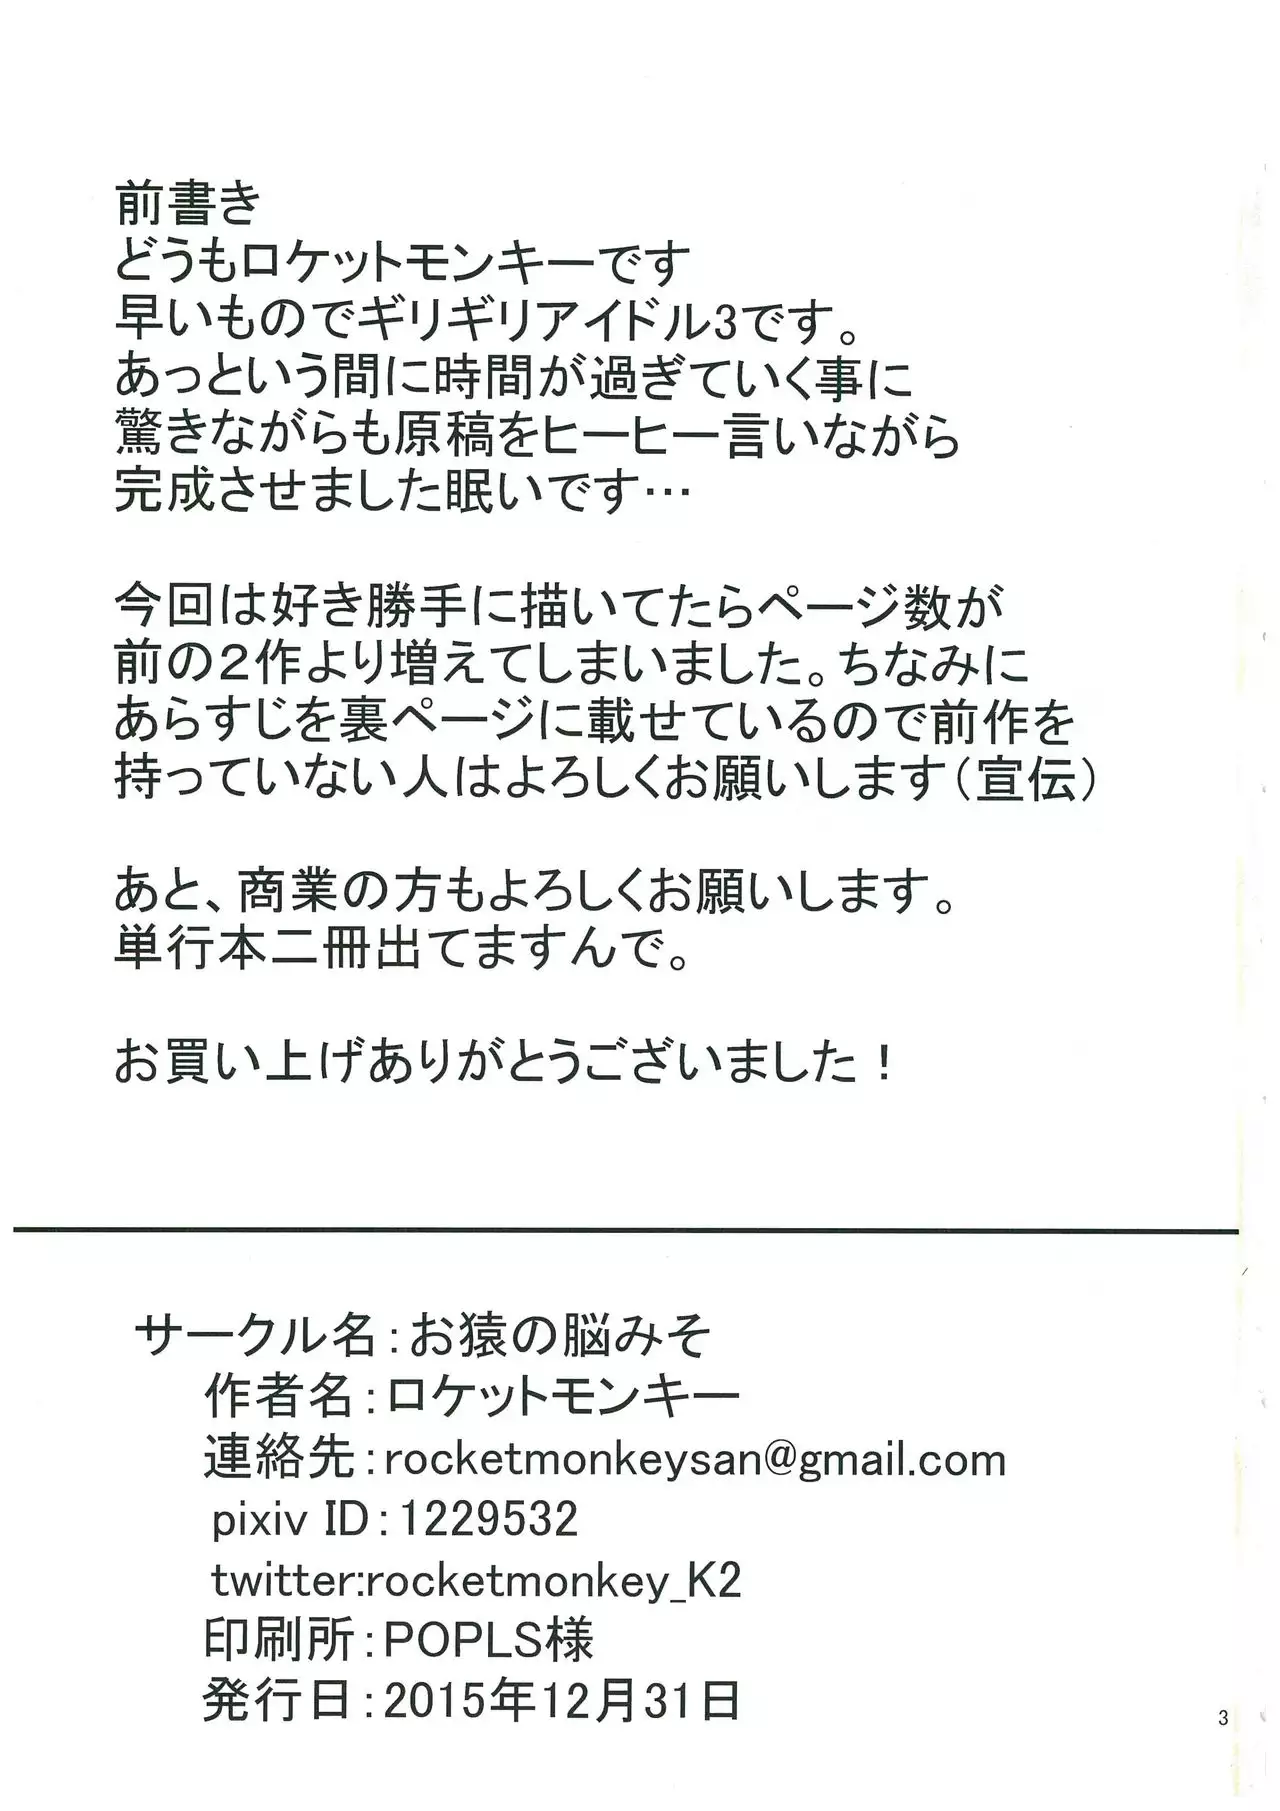 前書き
どうもロケットモンキーです
早いものでギリギリアイドル3です。
あっという間に時間が過ぎていく事に
驚きながらも原稿をヒーヒー言いながら
完成させました眠いです…
今回は好き勝手に描いてたらページ数が
前の２作より増えてしまいました。ちなみに
あらすじを裏ページに載せているので前作を
持っていない人はよろしくお願いします（宣伝）
あと、商業の方もよろしくお願いします。
単行本二冊出てますんで。
お買い上げありがとうございました！
サークル名：お猿の脳みそ
作者名：ロケットモンキー
連絡先：rocketmonkeysan@gmail.com
pixiv ID：1229532
twitter:rocketmonkey_K2
印刷所：POPLS様
発行日：2015年12月31日
3